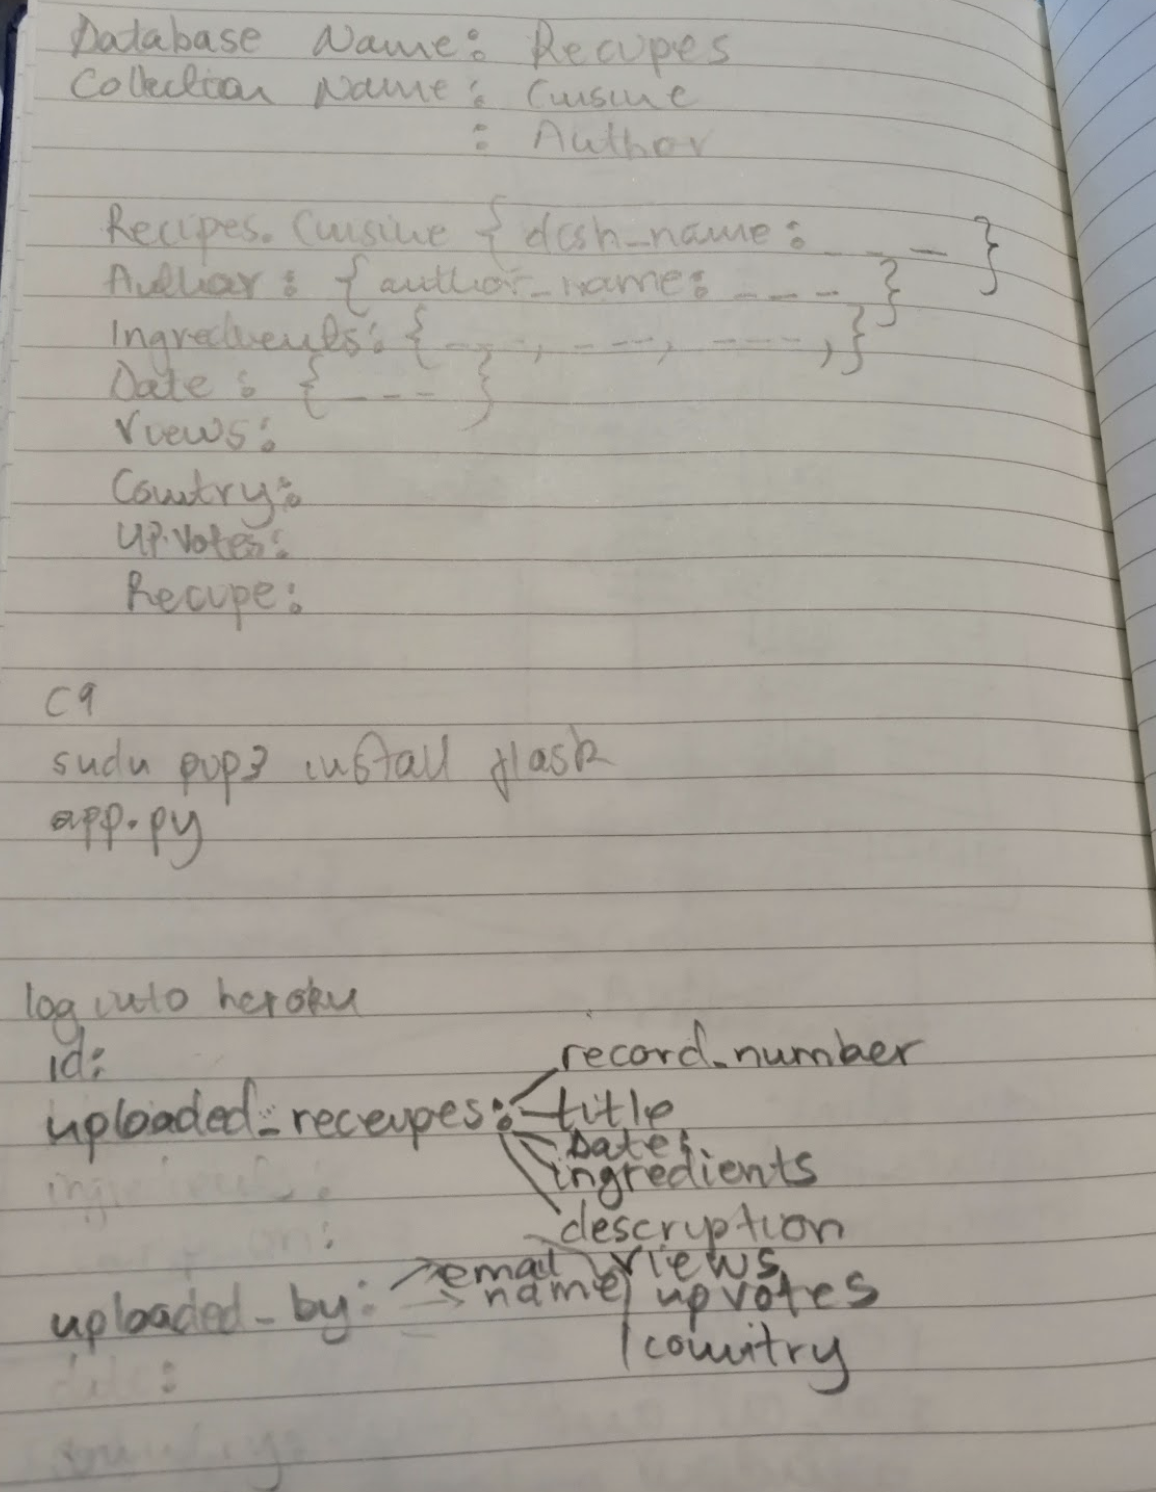 Database Name: Recipes
Collection Name: Cuisine
: Author
Recipes. Cuisine { dish_name: _ _ _ }
Author: { author_name: _ _ _ }
Ingredients: { _ _ _, _ _ _, _ _ _ _, }
Date: { _ _ _ }
Views:
Country:
UP.Votes:
Recipe:
C9
sudu pip3 install flask
app.py
log into heroku
id:
record_number
uploaded_receipes:
title
Date:
ingredients
description
views
email
uploaded_by:
name
upvotes
country
date: